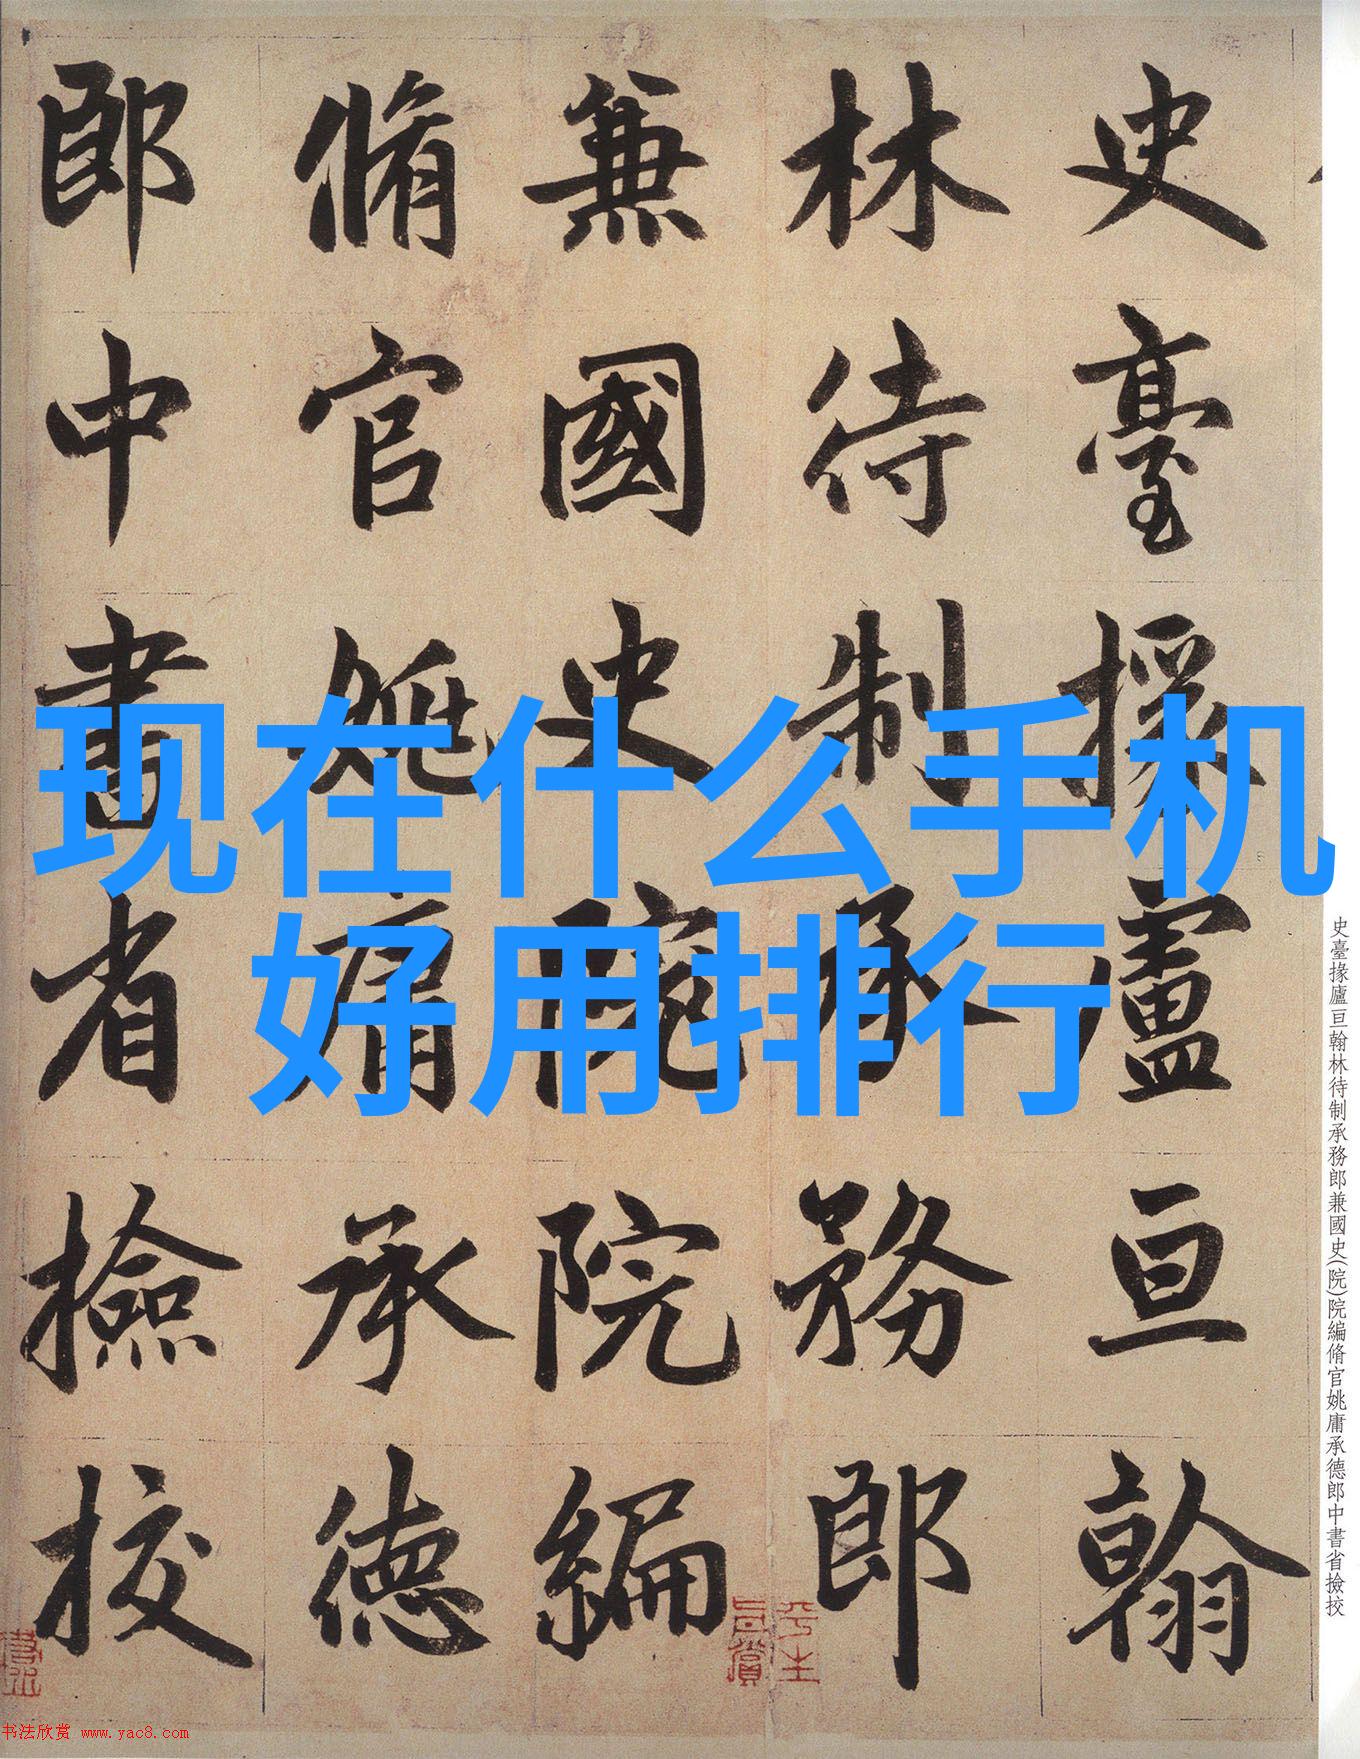 现在什么手机
好用排行
史臺掾盧亘翰
林待制承務郎
兼國史院院編
脩官姚庸承德
郎中書省撿挍
史臺掾廬亘翰林待制承務郎兼國史(院)院編脩官姚庸承德郎中書省撿挍
书法欣赏 www.yac8.com